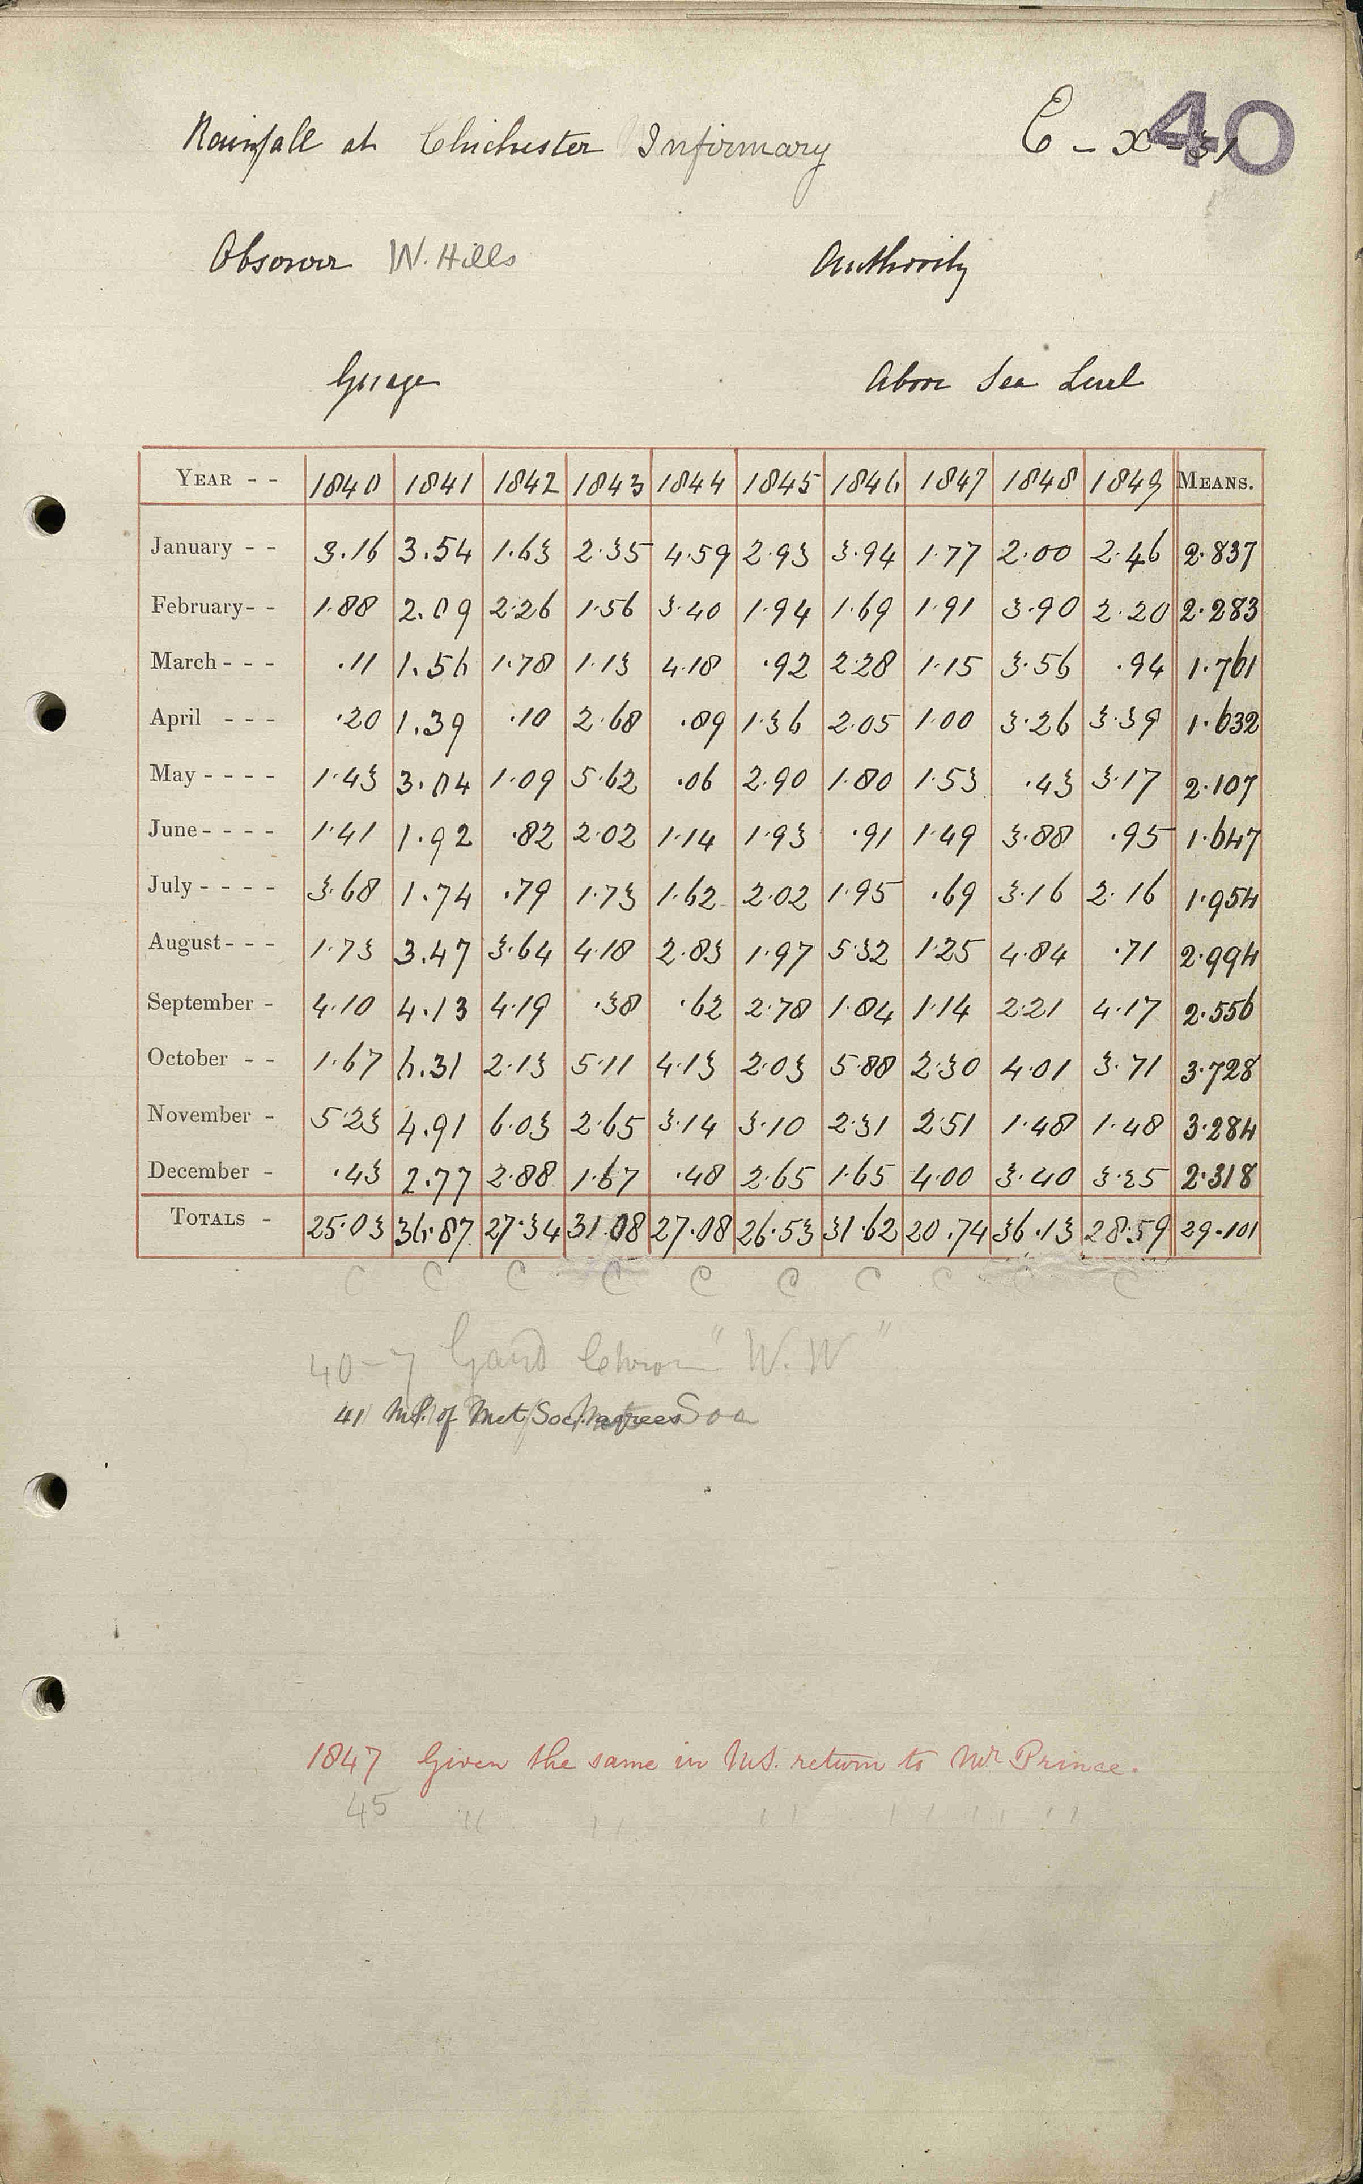 Rainfall at Chichester Infirmary E - X - 31 40
Observer W. Hills Authority
Gauge Above Sea Level
YEAR - - 1840 1841 1842 1843 1844 1845 1846 1847 1848 1849 MEANS.
January - - 3.16 3.54 1.63 2.35 4.59 2.93 3.94 1.77 2.00 2.46 2.837
February - - 1.88 2.09 2.26 1.56 3.40 1.94 1.69 1.91 3.90 2.20 2.283
March - - - .11 1.56 1.78 1.13 4.18 .92 2.28 1.15 3.56 .94 1.761
April - - - .20 1.39 .10 2.68 .89 1.36 2.05 1.00 3.26 3.39 1.632
May - - - - 1.43 3.04 1.09 5.62 .06 2.90 1.80 1.53 .43 3.17 2.107
June - - - - 1.41 1.92 .82 2.02 1.14 1.93 .91 1.49 3.88 .95 1.647
July - - - - 3.68 1.74 .79 1.73 1.62 2.02 1.95 .69 3.16 2.16 1.954
August - - - 1.73 3.47 3.64 4.18 2.83 1.97 5.32 1.25 4.84 .71 2.994
September - 4.10 4.13 4.19 .38 .62 2.78 1.84 1.14 2.21 4.17 2.556
October - - 1.67 6.31 2.13 5.11 4.13 2.03 5.88 2.30 4.01 3.71 3.728
November - 5.23 4.91 6.03 2.65 3.14 3.10 2.31 2.51 1.48 1.48 3.284
December - .43 2.77 2.88 1.67 .48 2.65 1.65 4.00 3.40 3.25 2.318
TOTALS - 25.03 36.87 27.34 31.08 27.08 26.53 31.62 20.74 36.13 28.59 29.101
C C C C C C C C C C
40-7 Gard Chron "W. W"
41 MS. of Met Soc. agrees
1847 Given the same in MS. return to Mr Prince.
45 " " " " " " " "